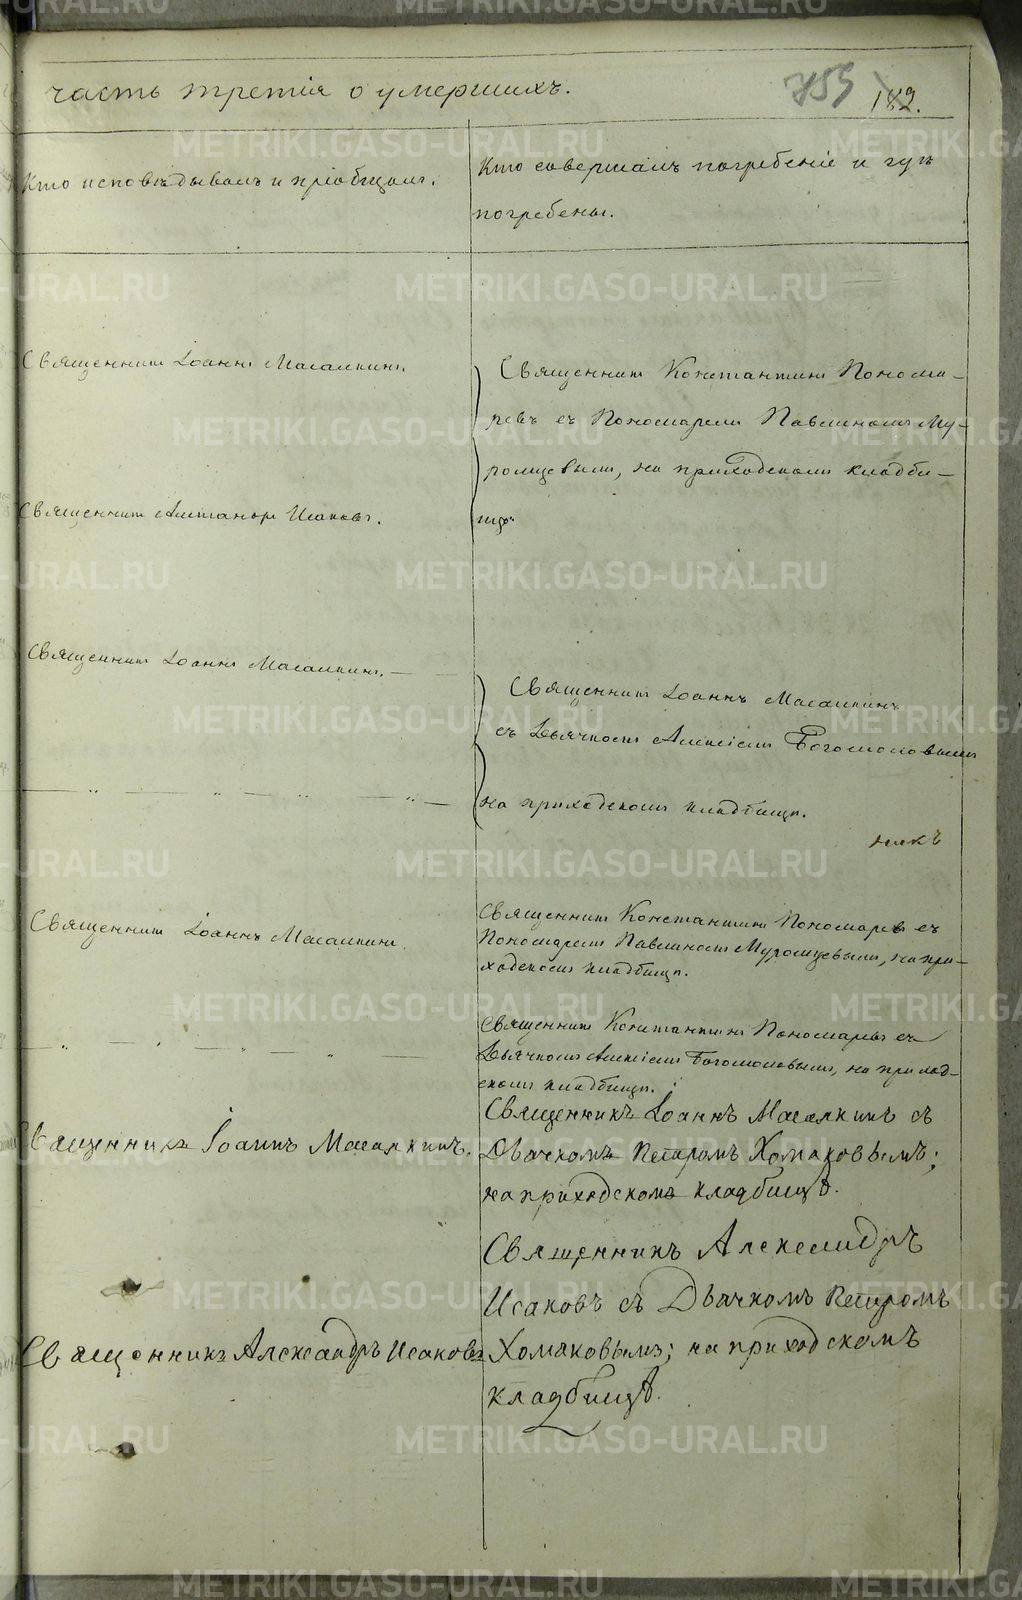 часть третія о умершихъ.
759 182.
Кто исповѣдывалъ и пріобщалъ.
Кто совершалъ погребеніе и гдѣ
погребены.
Священникъ Іоаннъ Масалкинъ.
Священникъ Константинъ Понома-
ревъ съ Пономаремъ Павлиномъ Му-
ромцевымъ, на приходскомъ кладби-
щѣ.
Священникъ Александръ Исаковъ.
Священникъ Іоаннъ Масалкинъ. —
Священникъ Іоаннъ Масалкинъ
съ Дьячкомъ Алексіемъ Богомоловымъ
— „ — „ — „ — „ —
на приходскомъ кладбищѣ.
Священникъ Іоаннъ Масалкинъ.
Священникъ Константинъ Пономаревъ съ
Пономаремъ Павлиномъ Муромцевымъ, на при-
ходскомъ кладбищѣ.
— „ — „ — „ —
Священникъ Константинъ Пономаревъ съ
Дьячкомъ Алексіемъ Богомоловымъ, на приход-
скомъ кладбищѣ.
Священникъ Іоаннъ Масалкинъ.
Священникъ Іоаннъ Масалкинъ съ
Дьячкомъ Петромъ Хомяковымъ;
на приходскомъ кладбищѣ.
Священникъ Александръ Исаковъ
Священникъ Александръ
Исаковъ съ Дьячкомъ Петромъ
Хомяковымъ; на приходскомъ
кладбищѣ.
METRIKI.GASO-URAL.RU